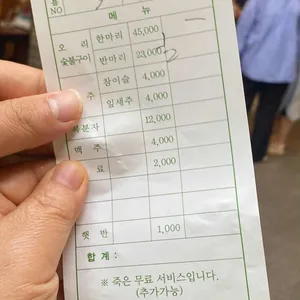 NO
메 뉴
오 리 한마리 45,000
숯불구이 반마리 23,000
주 참이슬 4,000
잎새주 4,000
복분자 12,000
맥 주 4,000
료 2,000
햇 반 1,000
합 계 :
※ 죽은 무료 서비스입니다.
(추가가능)